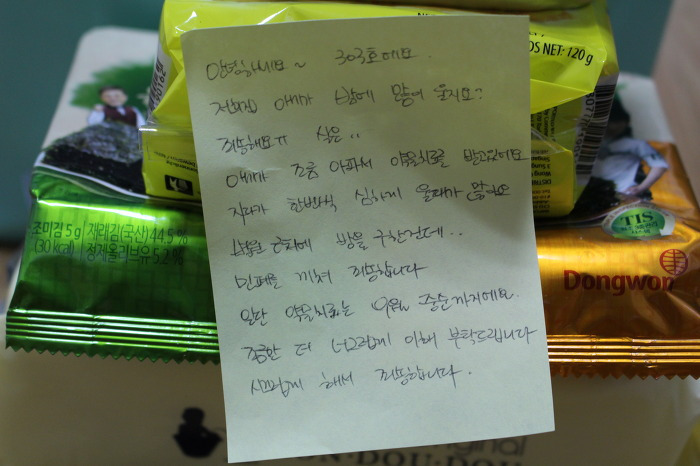 OS NET: 120 g
안녕하세요~ 303호에요.
저희집 애가 밤에 많이 울지요?
죄송해요ㅠ 실은..
애가 조금 아파서 약물치료를 받고있어요
자다가 한번씩 심하게 울때가 많아요
병원 근처에 방을 구한건데..
민폐를 끼쳐 죄송합니다
일단 약물치료는 중순까지에요.
조금만 더 너그럽게 이해 부탁드립니다
시끄럽게 해서 죄송합니다.
조미김 5 g 재래김(국산) 44.5 %
(30 kcal) 정제올리브유 5.2 %
TIS
Dongwon